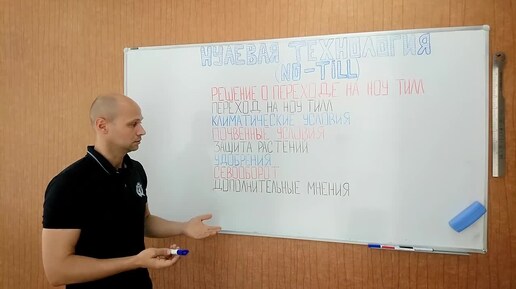 НУЛЕВАЯ ТЕХНОЛОГИЯ
(NO-TILL)
РЕШЕНИЕ О ПЕРЕХОДЕ НА НОУ ТИЛЛ
ПЕРЕХОД НА НОУ ТИЛЛ
КЛИМАТИЧЕСКИЕ УСЛОВИЯ
ПОЧВЕННЫЕ УСЛОВИЯ
ЗАЩИТА РАСТЕНИЙ
УДОБРЕНИЯ
СЕВООБОРОТ
ДОПОЛНИТЕЛЬНЫЕ МНЕНИЯ